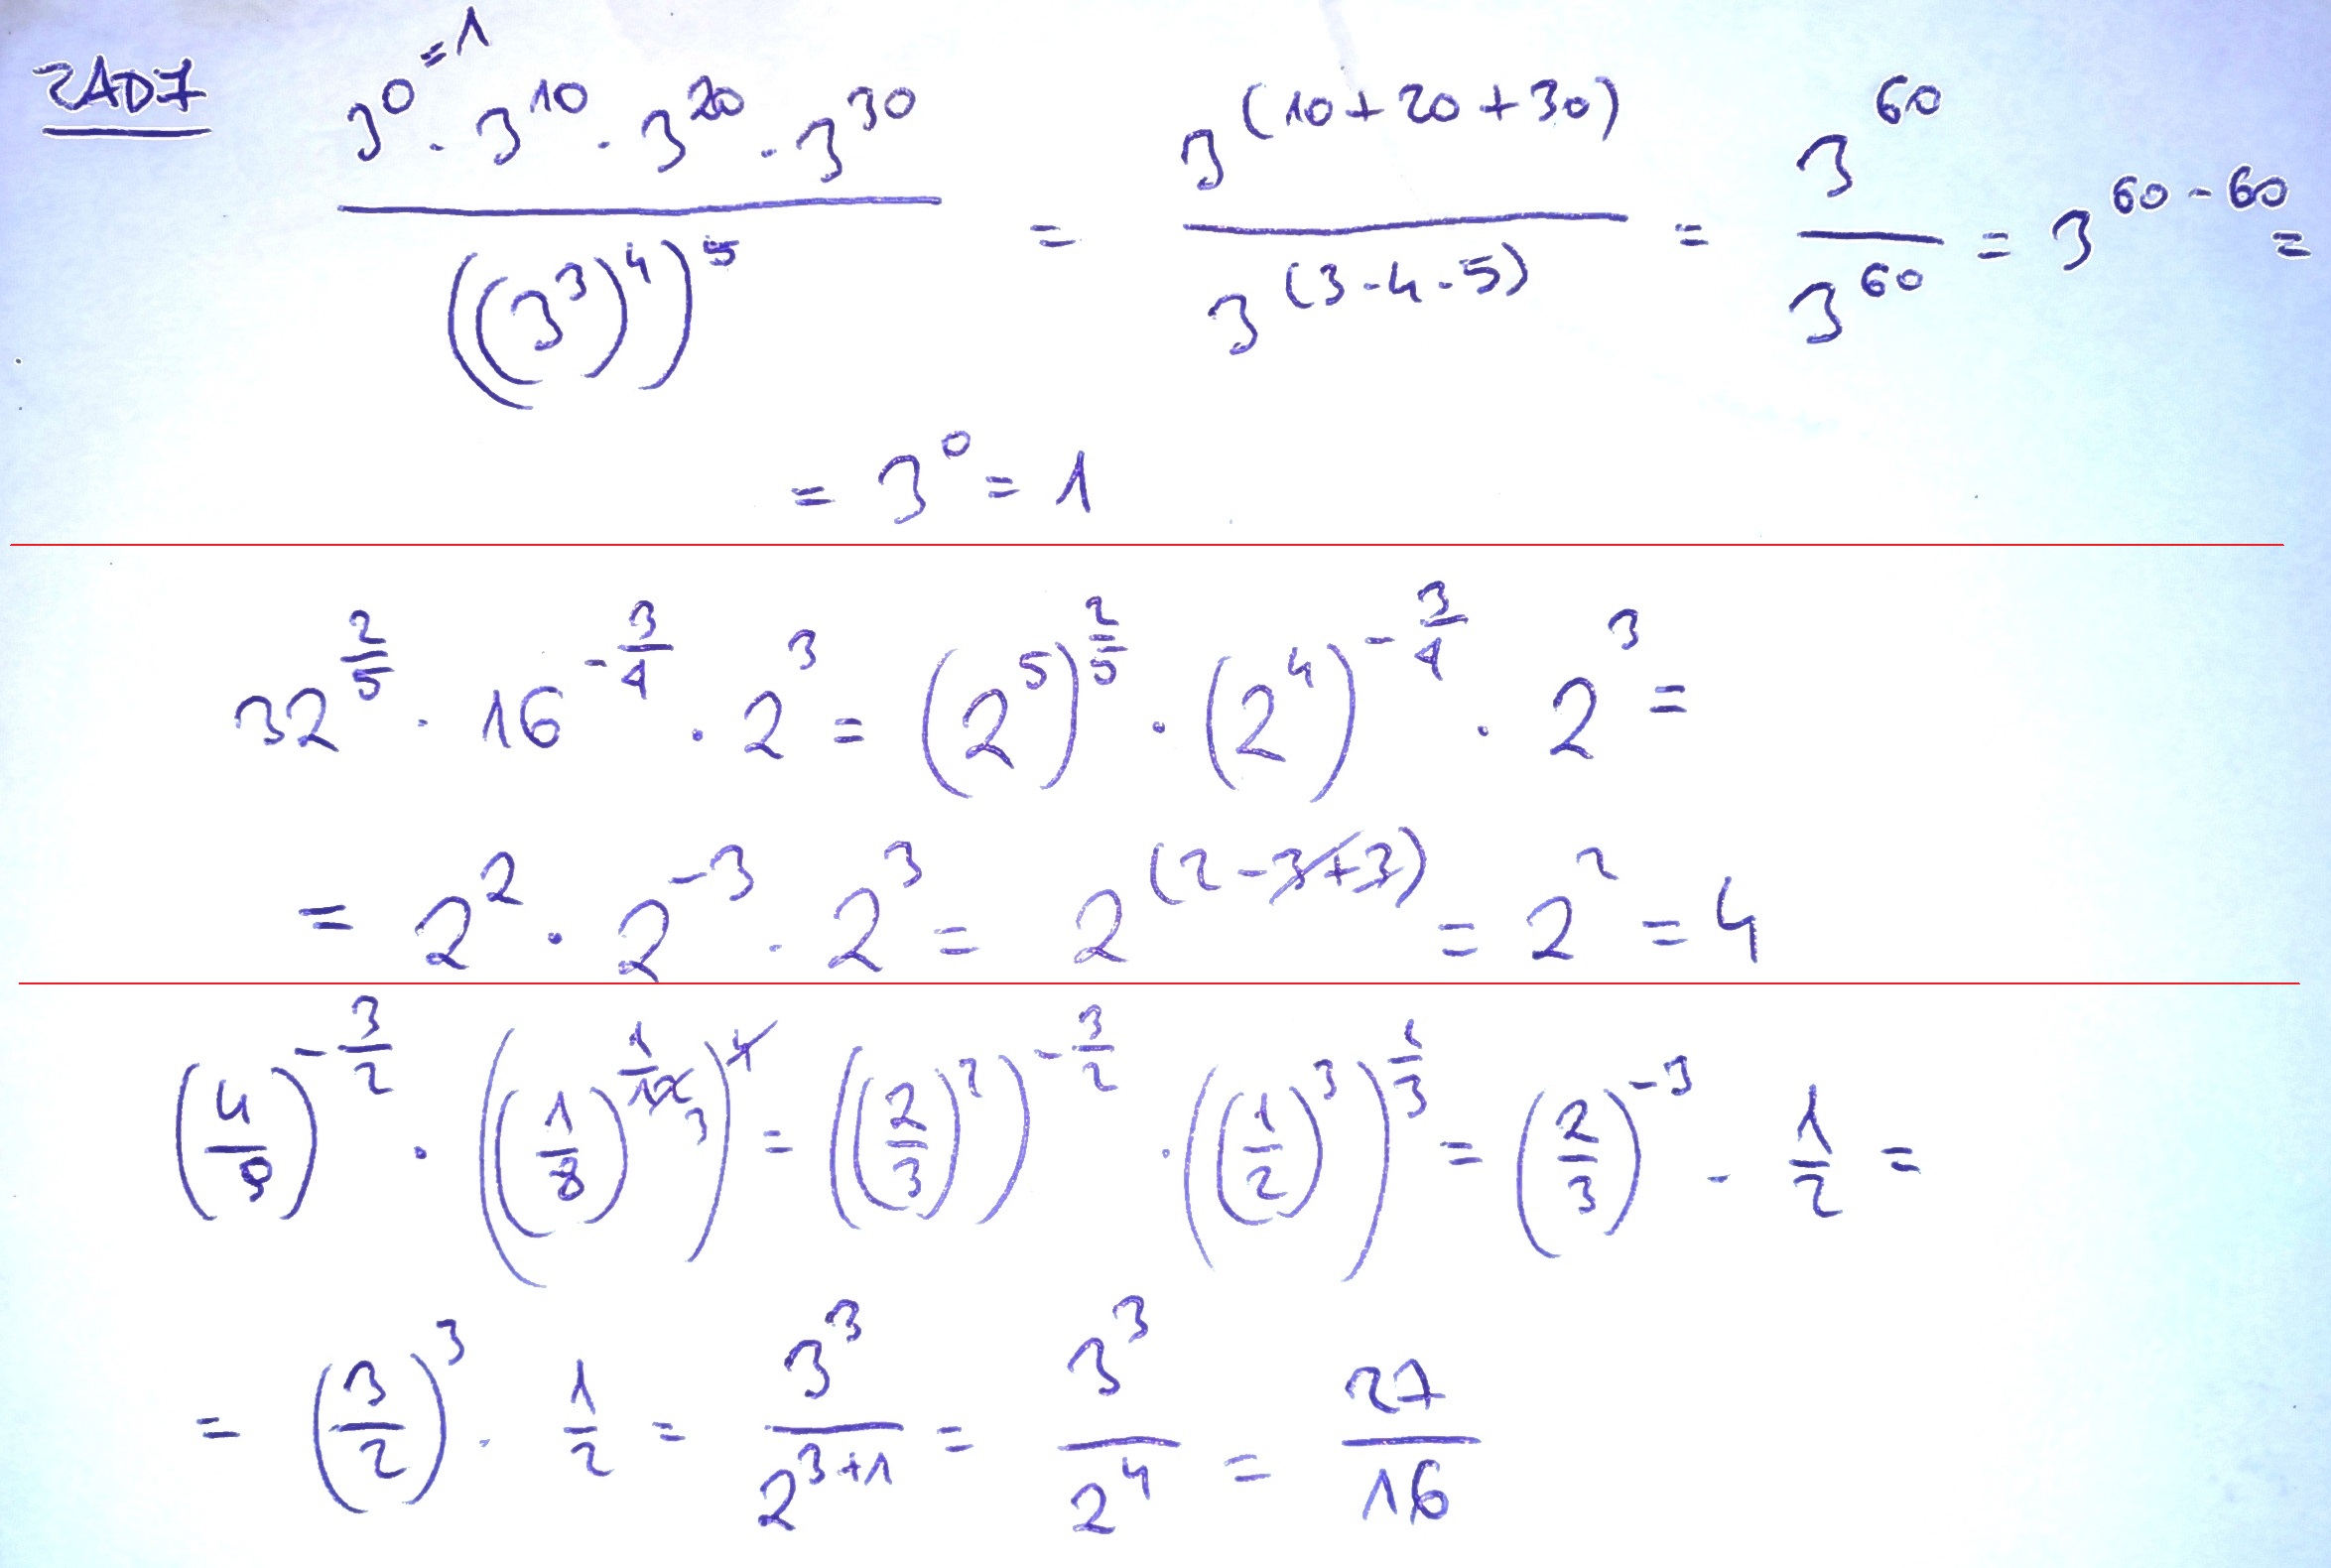 ZAD7 \frac{3^{0^{=1}} \cdot 3^{10} \cdot 3^{20} \cdot 3^{30}}{((3^3)^4)^5} = \frac{3^{(10+20+30)}}{3^{(3 \cdot 4 \cdot 5)}} = \frac{3^{60}}{3^{60}} = 3^{60-60} =
= 3^0 = 1
32^{\frac{2}{5}} \cdot 16^{-\frac{3}{4}} \cdot 2^3 = (2^5)^{\frac{2}{5}} \cdot (2^4)^{-\frac{3}{4}} \cdot 2^3 =
= 2^2 \cdot 2^{-3} \cdot 2^3 = 2^{(2-3+3)} = 2^2 = 4
(\frac{4}{9})^{-\frac{3}{2}} \cdot ((\frac{1}{8})^{\frac{1}{12 3}})^4 = ((\frac{2}{3})^2)^{-\frac{3}{2}} \cdot ((\frac{1}{2})^3)^{\frac{1}{3}} = (\frac{2}{3})^{-3} \cdot \frac{1}{2} =
= (\frac{3}{2})^3 \cdot \frac{1}{2} = \frac{3^3}{2^{3+1}} = \frac{3^3}{2^4} = \frac{27}{16}